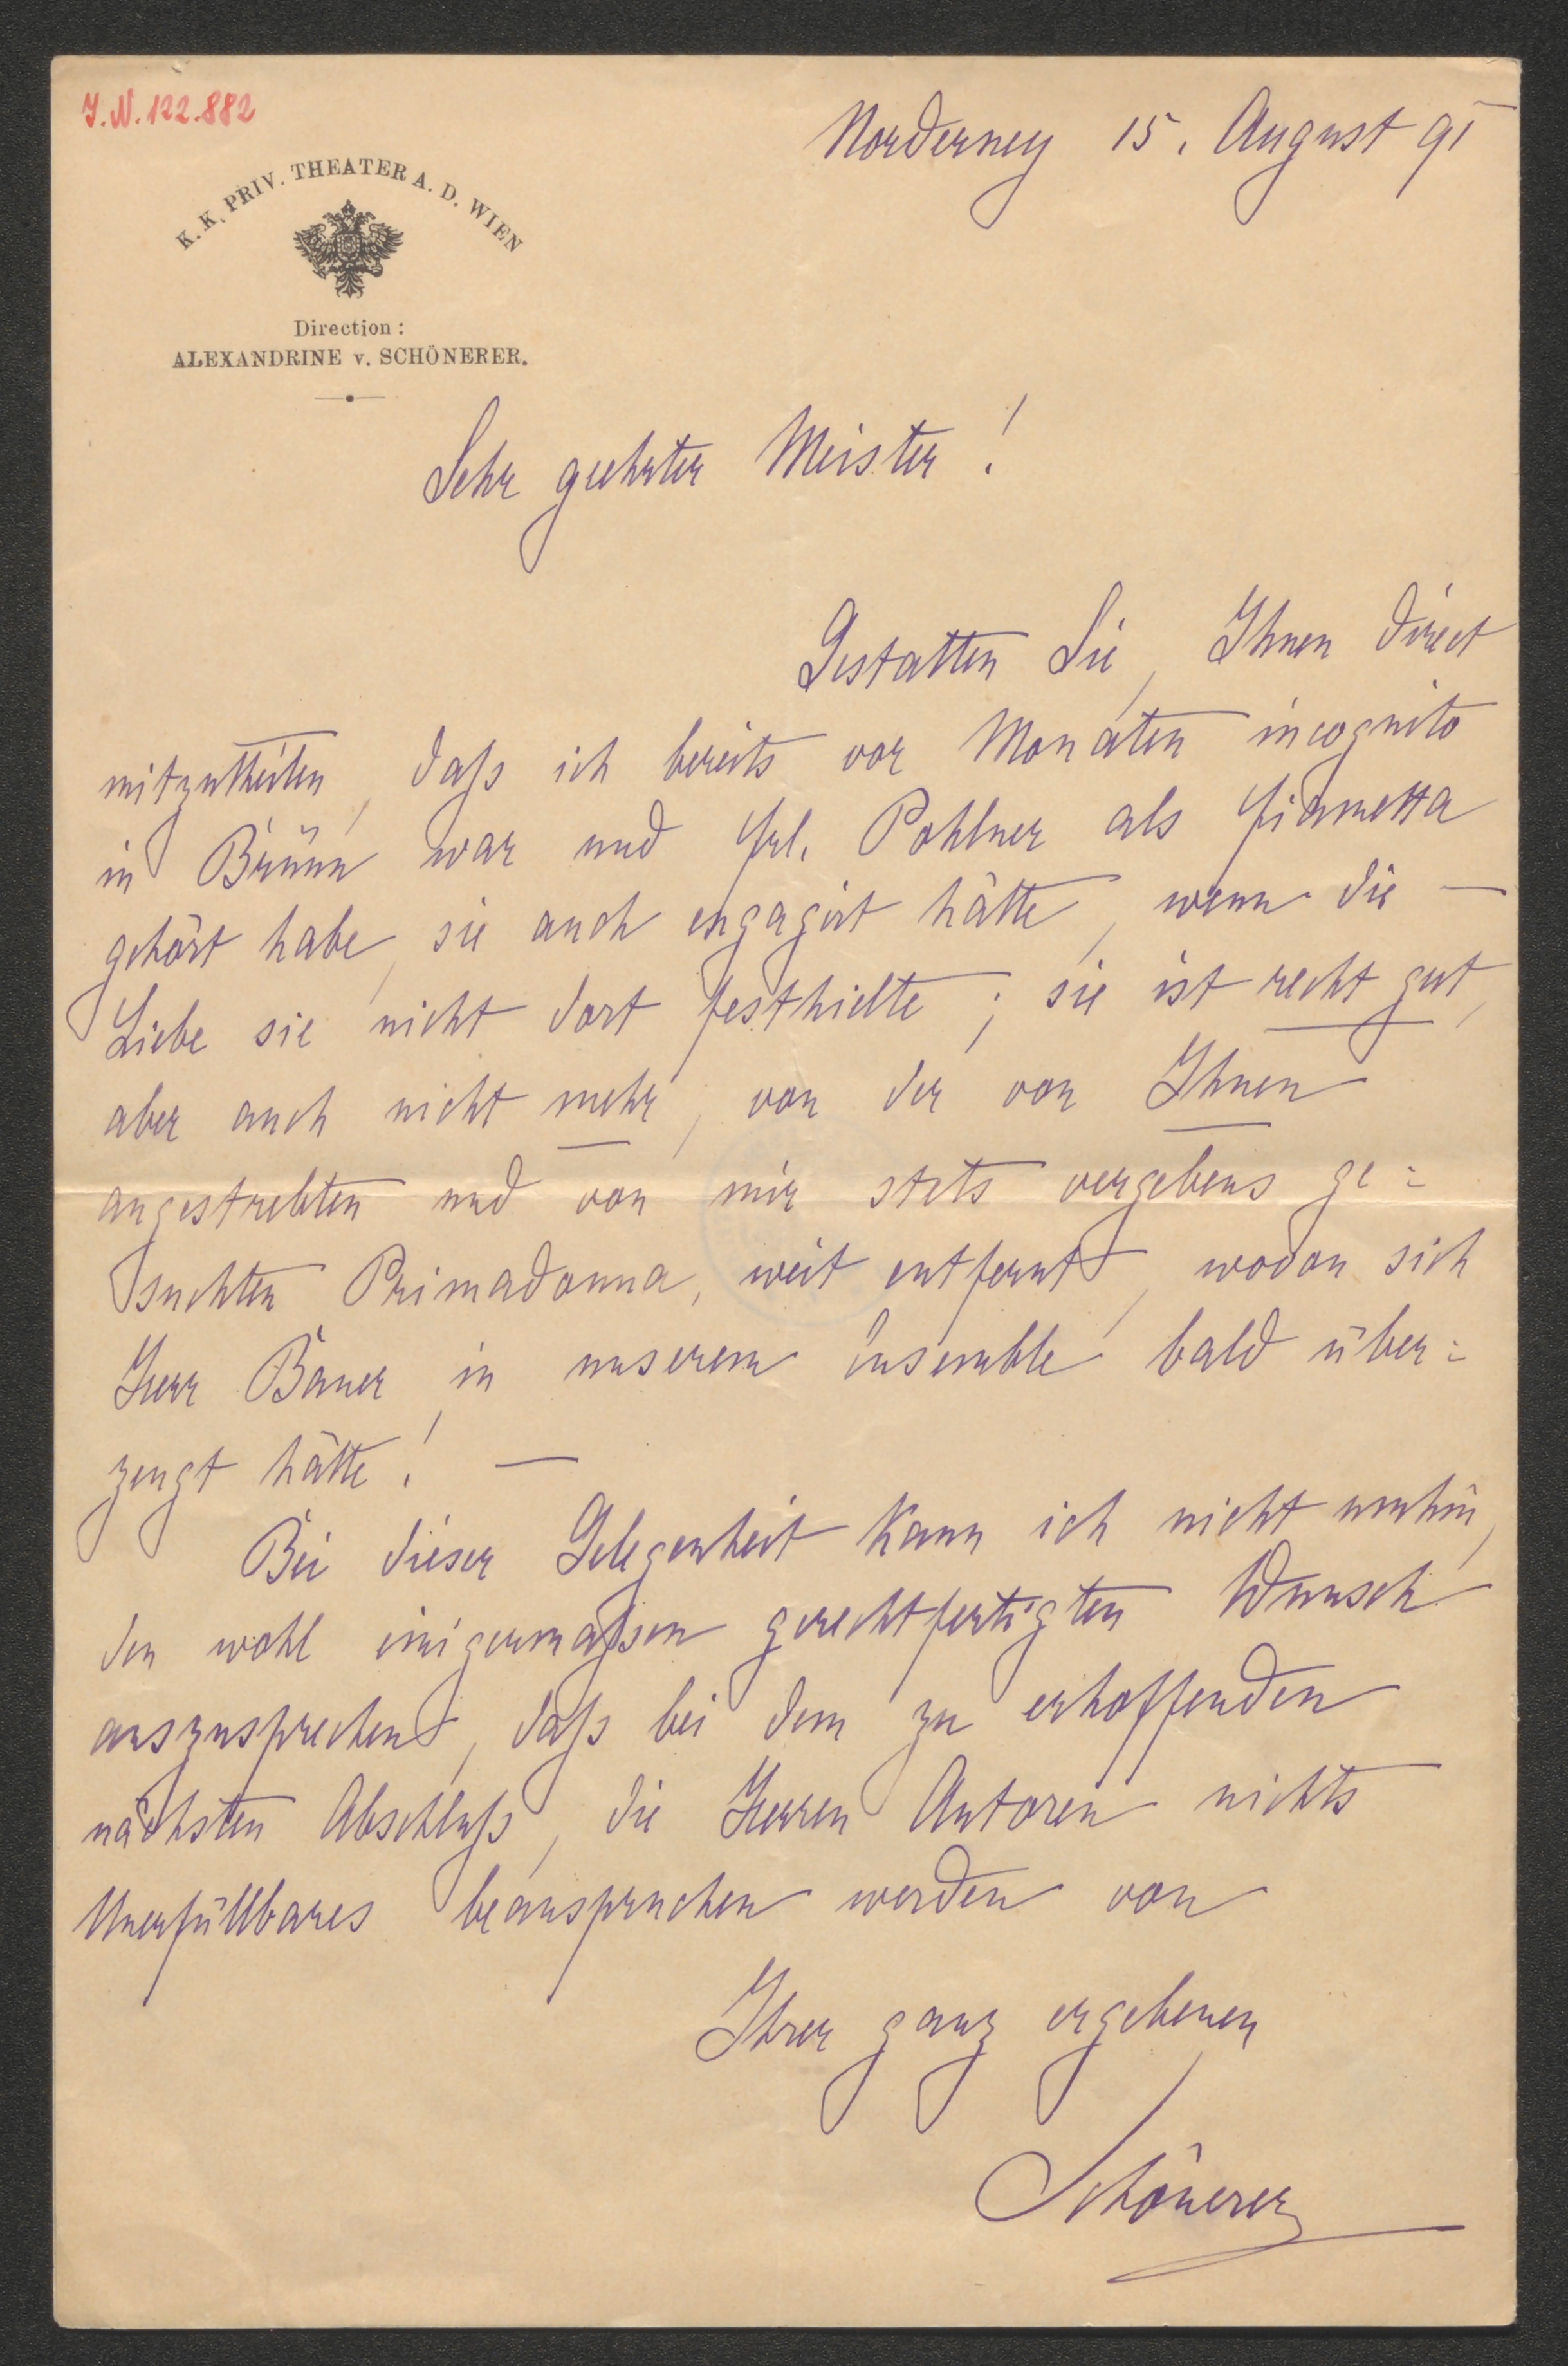 J.N. 122.882
Norderney 15. August 91
K. K. PRIV. THEATER A. D. WIEN
Direction:
ALEXANDRINE v. SCHÖNERER.
Sehr geehrter Meister!
Gestatten Sie, Ihnen direct
mitzutheilen, daſs ich bereits vor Monaten incognito
in Brünn war und Frl. Pohlner als Fiametta
gehört habe, sie auch engagirt hätte, wenn die —
Liebe sie nicht dort festhielte; sie ist recht gut,
aber auch nicht mehr, von der von Ihnen
angestrebten und von mir stets vergebens ge=
suchten Primadonna, weit entfernt, wovon sich
Herr Bauer in unserem Ensemble bald über=
zeugt hätte! —
Bei dieser Gelegenheit kann ich nicht umhin,
den wohl einigermaſsen gerechtfertigten Wunsch
auszusprechen, daſs bei dem zu erhoffenden
nächsten Abschluſs, die Herren Autoren nichts
Unerfüllbares beanspruchen werden von
Ihrer ganz ergebenen
Schönerer